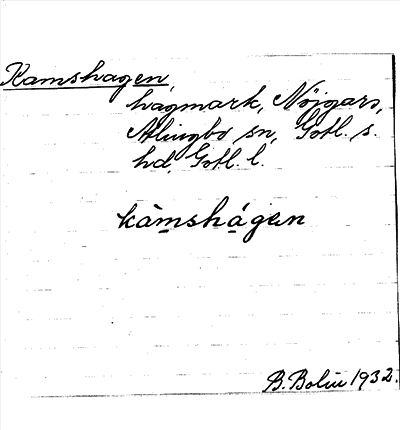 Kamshagen,
hagmark, Nöjgars,
Alingbo sn, Gotl. s.
hd, Gotl. l.
kàmshágen
B. Bolin 1932.